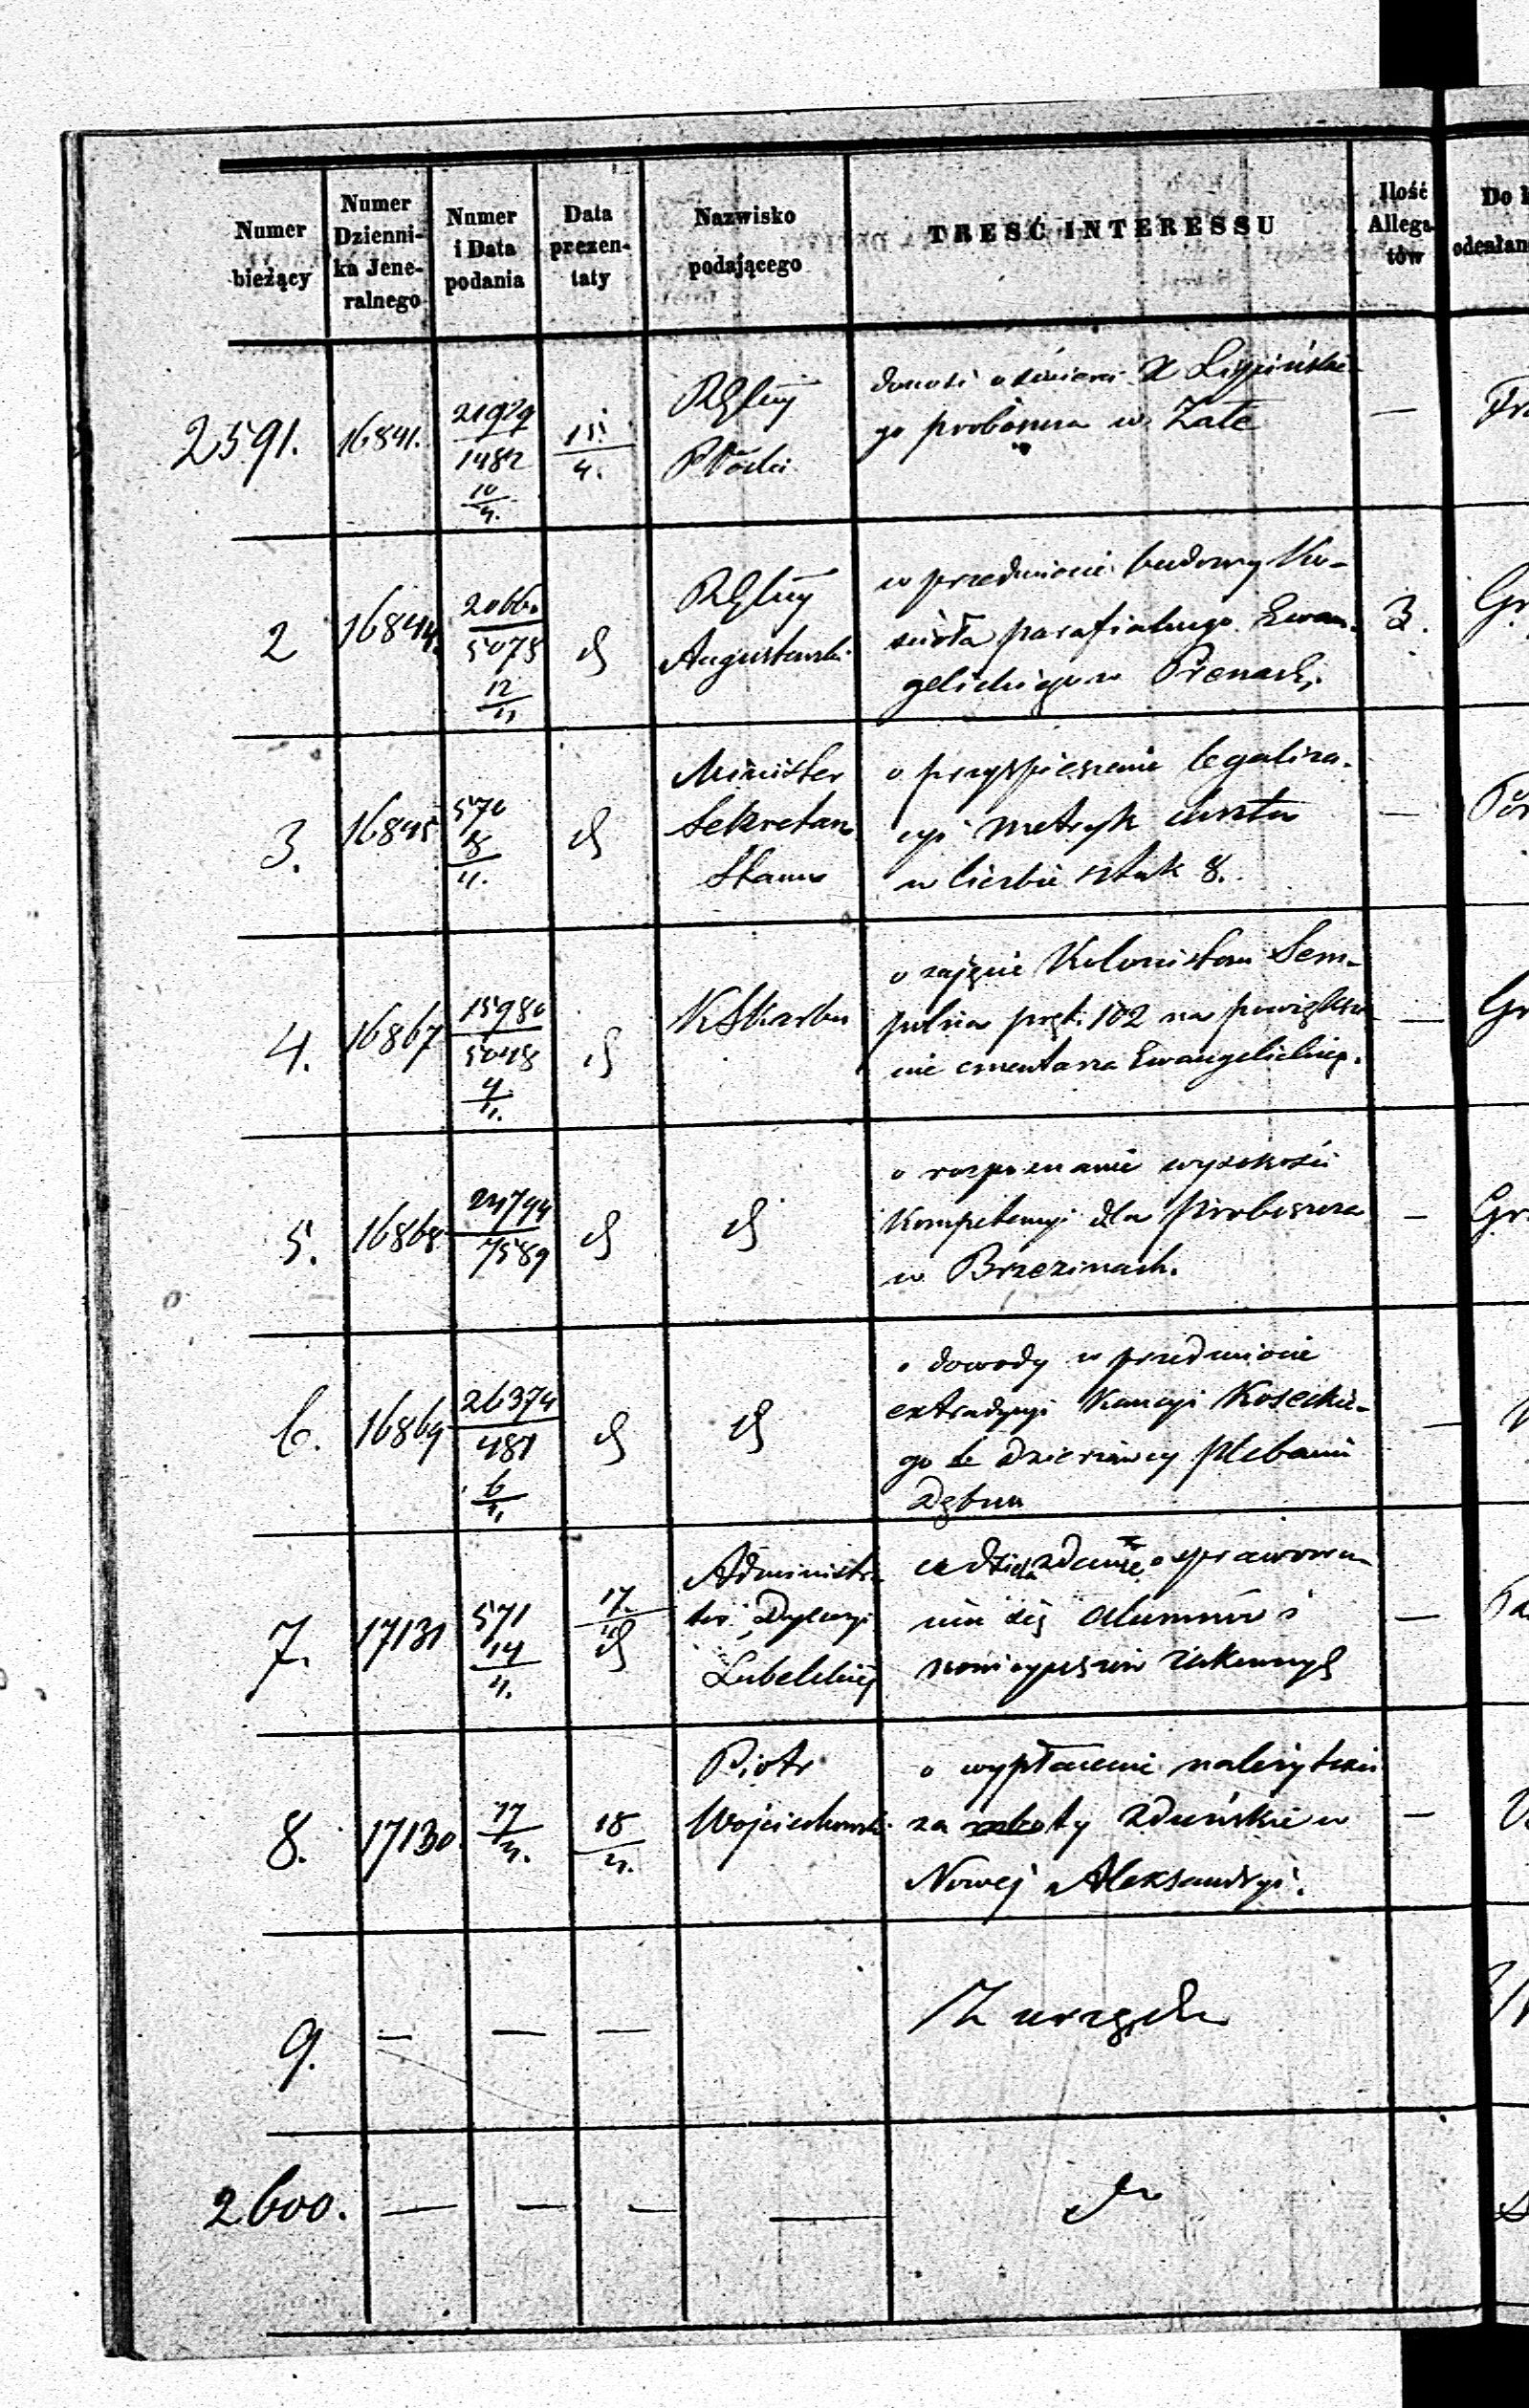 Numer bieżący
Numer Dzienni-ka Jene-ralnego
Numer i Data podania
Data prezen-taty
Nazwisko podającego
TREŚĆ INTERESSU
Ilość Allega-tów
2591.
16841.
21929
1482
10
4.
15.
4.
Płocki
donosi o śmierci X Lipińskie-
go proboszcza w
—
2
16844.
2066.
5075
12
4
Augustowski
w przedmiocie budowy Ko-
ścioła parafialnego Ewan-
gelickiego w Prenach.
3.
3.
16845
570
8
4.
Minister
Sekretarz
Stanu
o przyspieszenie legaliza-
cyi metryk chrztu
w liczbie sztuk 8.
—
4.
16867
15980
5048
4
4.
KSkarbu
o zajęcie Kolonistom Sem-
polna pręt. 102 na powiększe-
nie cmentarza Ewangelickieg.
—
5.
16868
24794
7589
o rozpoznanie wysokości
Kompetencyi dla Proboszcza
w Brzezinach.
—
6.
16869
26374
481
6
4.
o dowody w przedmiocie
extradycyi Kaucyi Koseckie-
go dzierżawcy plebanii
—
7.
17131
571
14
4.
17.
4
Administra-
tor Dyecezyi
Lubelskiej
o sprawowa-
niu się alumnów i
nowicyuszów zakonnych
—
8.
17130.
17
4.
18
4.
Piotr
Wojciechowski
o wypłacenie należytości
za roboty zduńskie w
Nowej Aleksandryi.
—
9.
—
—
—
Z urzędu
2600.
—
—
—
—